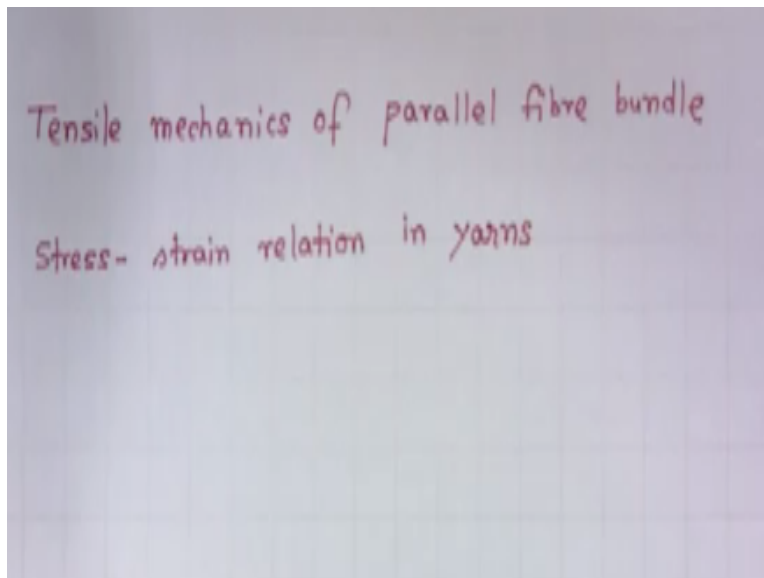 Tensile mechanics of parallel fibre bundle
Stress-strain relation in yarns